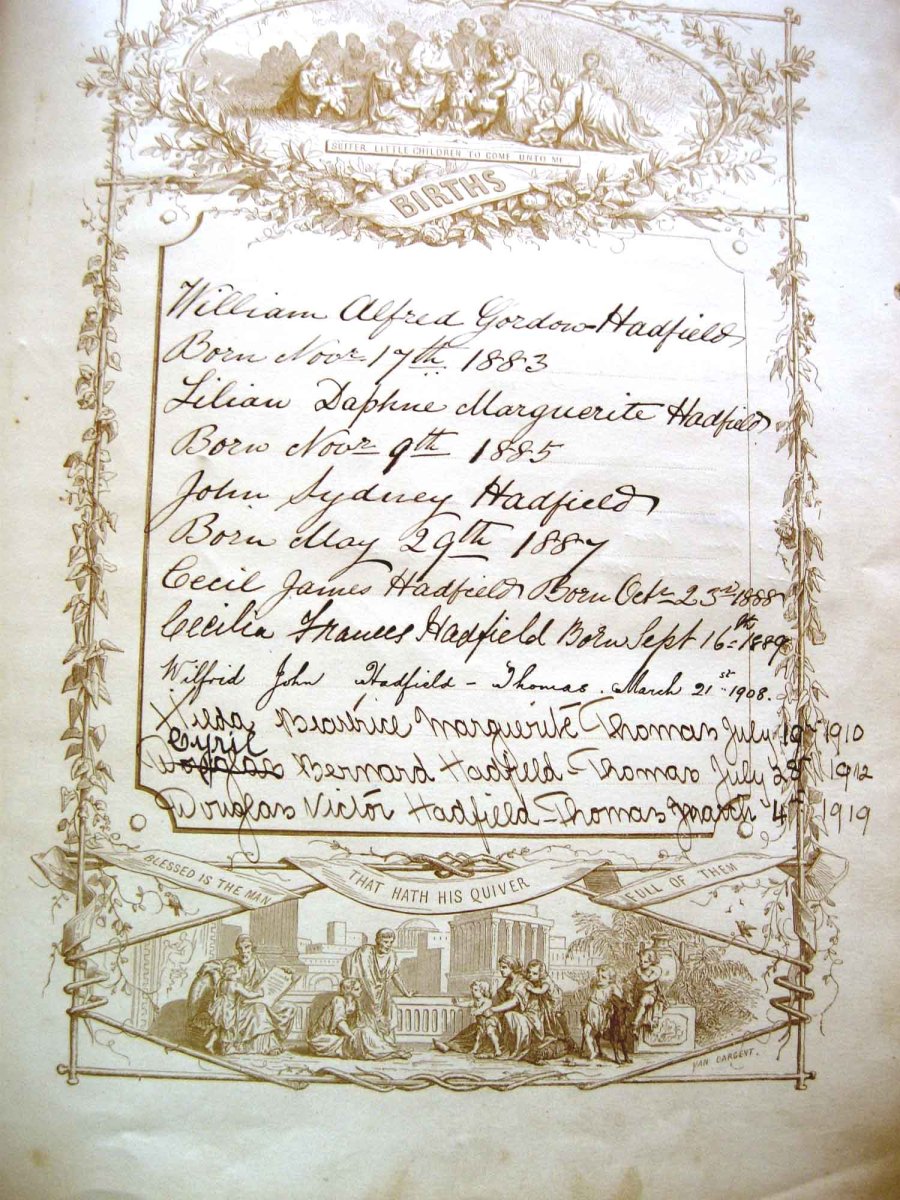 SUFFER LITTLE CHILDREN TO COME UNTO ME
BIRTHS
William Alfred Gordon Hadfield
Born Novr 17th 1883
Lilian Daphne Marguerite Hadfield
Born Novr 9th 1885
John Sydney Hadfield
Born May 29th 1887
Cecil James Hadfield Born Octr 23rd 1888
Cecilia Frances Hadfield Born Sept 16th 1889
Wilfrid John Hadfield - Thomas. March 21st 1908.
Hilda Beatrice Marguerite Thomas July 19th 1910
Cyril
Douglas Bernard Hadfield-Thomas July 28th 1912
Douglas Victor Hadfield-Thomas March 4th 1919
BLESSED IS THE MAN THAT HATH HIS QUIVER FULL OF THEM
YAN DARGENT.